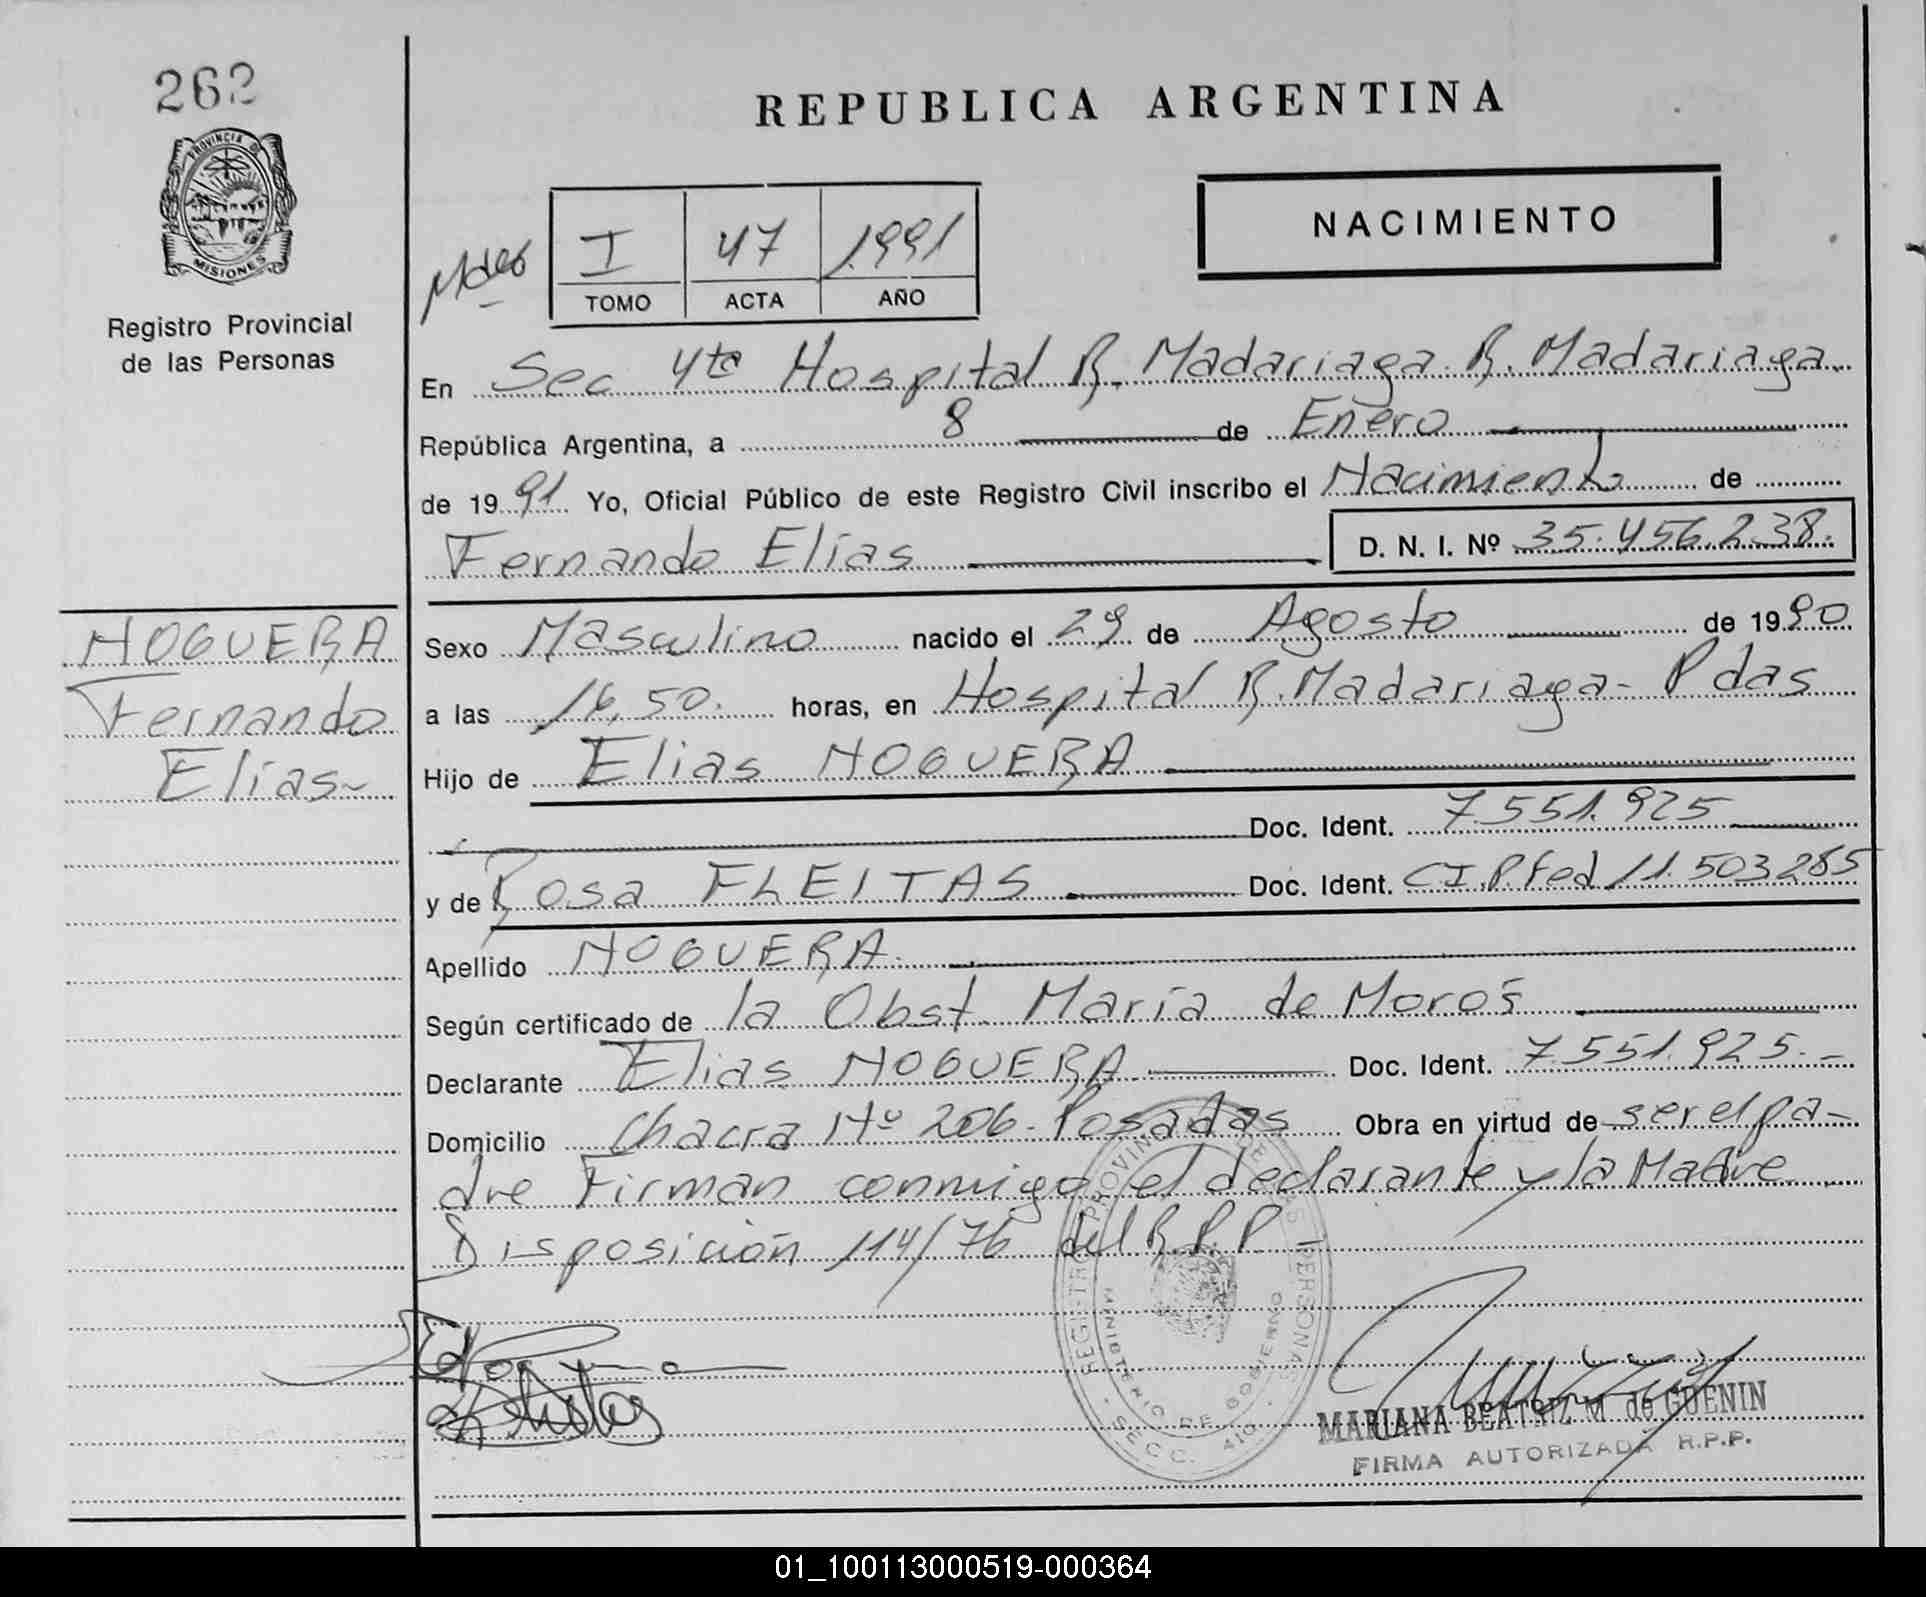 262
PROVINCIA DE
MISIONES
Registro Provincial
de las Personas
REPUBLICA ARGENTINA
NACIMIENTO
I 47 1991
TOMO ACTA AÑO
En Sec 4ta Hospital R. Madariaga R. Madariaga
República Argentina, a 8 de Enero
de 1991 Yo, Oficial Público de este Registro Civil inscribo el Nacimiento de
Fernando Elías D. N. I. Nº 35.456.238.
NOGUERA
Fernando
Elías
Sexo Masculino nacido el 29 de Agosto de 1990
a las 16,50. horas, en Hospital R. Madariaga - Pdas
Hijo de Elías NOGUERA
Doc. Ident. 7.551.925
y de Rosa FLEITAS Doc. Ident. CI.P.fed 11.503265
Apellido NOGUERA
Según certificado de la Obst. María de Moros
Declarante Elías NOGUERA Doc. Ident. 7.551.925.-
Domicilio Chacra Nº 206 - Posadas Obra en virtud de ser el pa-
dre Firman conmigo el declarante y la Madre
Disposición 114/76 del R.P.P
REGISTRO PROVINCIAL DE LAS PERSONAS
MINISTERIO DE GOBIERNO
SECC. 4ta
MARIANA BEATRIZ M de GUENIN
FIRMA AUTORIZADA R.P.P.
01_100113000519-000364